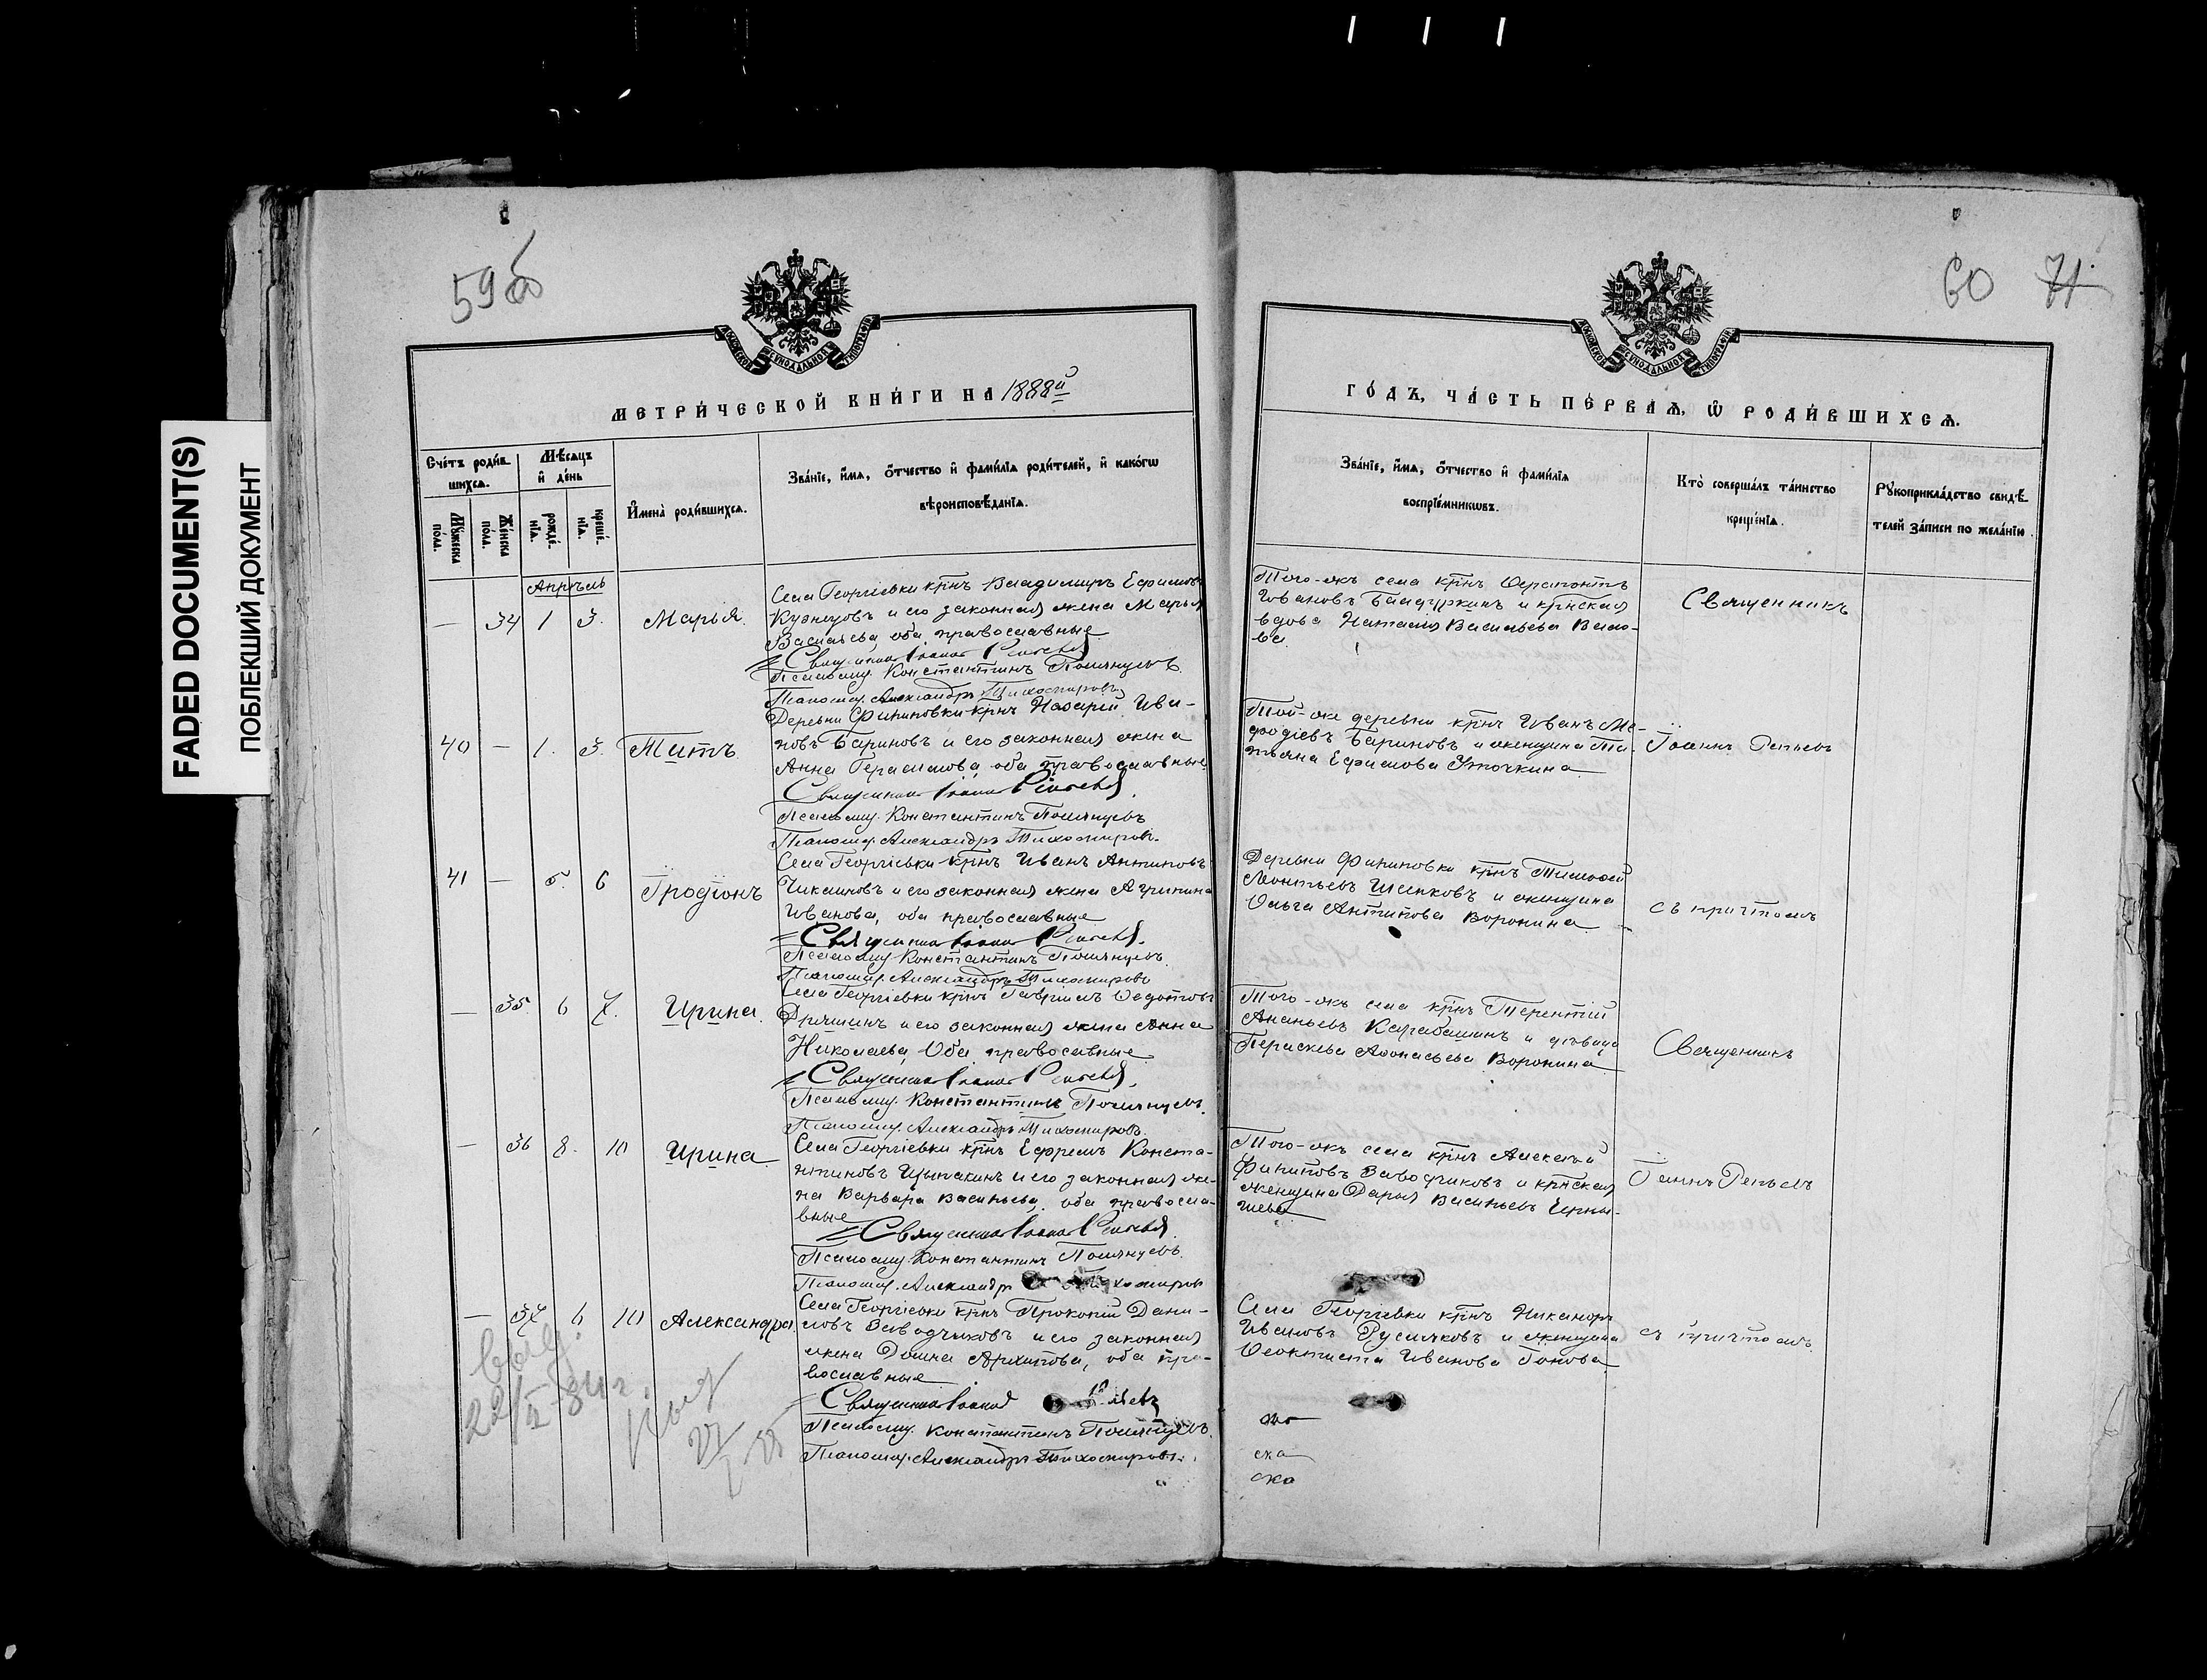 FADED DOCUMENT(S)
ПОБЛЕКШИЙ ДОКУМЕНТ
59 б
60 71
МЕТРИ́ЧЕСКОЙ КНИ́ГИ НА 1888й
ГО́ДЪ, ЧА́СТЬ ПЕ́РВАѦ, Ѿ РОДИ́ВШИХСѦ.
Сче́тъ роди́в-
шихсѧ.
Мѣ́сѧцъ
и де́нь
Мꙋ́жеска по́ла.
Же́нска по́ла.
рожде́-
нїѧ.
креще́-
нїѧ.
Имена̀ роди́вшихсѧ.
Зва́нїе, и́мѧ, ѻ́тчество и фами́лїѧ роди́телей, и како́гѡ
вѣроисповѣ́данїѧ.
Зва́нїе, и́мѧ, ѻ́тчество и фами́лїѧ
воспрїе́мникѡвъ.
Кто̀ соверша́лъ та́инство
креще́нїѧ.
Рꙋкоприкла́дство свидѣ́-
телей за́писи по жела́нїю.
Апрѣль
— 34 1 3. Марья.
Села Георгіевки крнъ Владимиръ Ефимовъ
Кузнецовъ и его законная жена Марья
Васильева, оба православные
Священникъ Іоаннъ
Псаломщ. Константинъ
Псаломщ. Александръ Тихомировъ
Того-жъ села крнъ Ферапонтъ
Ивановъ и крнская
вдова Наталія Васильева Власо-
ва.
Священникъ
40 — 1. 3. Титъ
Деревни Филиповки крнъ Назарій Ива-
новъ Бариновъ и его законная жена
Анна Герасимова, оба православные
Священникъ Іоаннъ
Псаломщ. Константинъ
Псаломщ. Александръ Тихомировъ.
Той-же деревни крнъ Иванъ Ме-
фодіевъ Бариновъ и женщина Та-
тьяна Ефимова Уточкина
Іоаннъ
41 — 5. 6 Иродіонъ
Села Георгіевки крнъ Иванъ Антиповъ
и его законная жена Агрипина
Иванова, оба православные
Священникъ Іоаннъ
Псаломщ. Константинъ
Псаломщ. Александръ Тихомировъ
Деревни Филиповки крнъ Тимофей
Леонтьевъ и женщина
Ольга Антипова Воронина
съ причтомъ
— 35. 6 7. Ирина.
Села Георгіевки крнъ Гавріилъ Федотовъ
и его законная жена Анна
Николаева, Оба православные
Священникъ Іоаннъ
Псаломщ. Константинъ
Псаломщ. Александръ Тихомировъ.
Того-жъ села крнъ Терентій
Ананьевъ Карабашинъ и дѣвица
Параскева Афонасьева Воронина
Священникъ
— 36 8. 10 Ирина
Села Георгіевки крнъ Ефремъ Конста-
нтиновъ и его законная же-
на Варвара Васильева, оба правосла-
вные
Священникъ Іоаннъ
Псаломщ. Константинъ
Псаломщ. Александръ Тихомировъ
Того-жъ села крнъ Алексѣй
Филиповъ Заводчиковъ и крнская
женщина Дарья Васильевъ Черны-
шева
Іоаннъ
— 37 6 10 Александра.
Села Георгіевки крнъ Прокопій Дани-
ловъ Заводчиковъ и его законная
жена Домна Архипова, оба пра-
вославные
Священникъ Іоаннъ
Псаломщ. Константинъ
Псаломщ. Александръ Тихомировъ.
Села Георгіевки крнъ Никаноръ
Ивановъ Русяковъ и женщина
Феоктиста Иванова
съ причтомъ